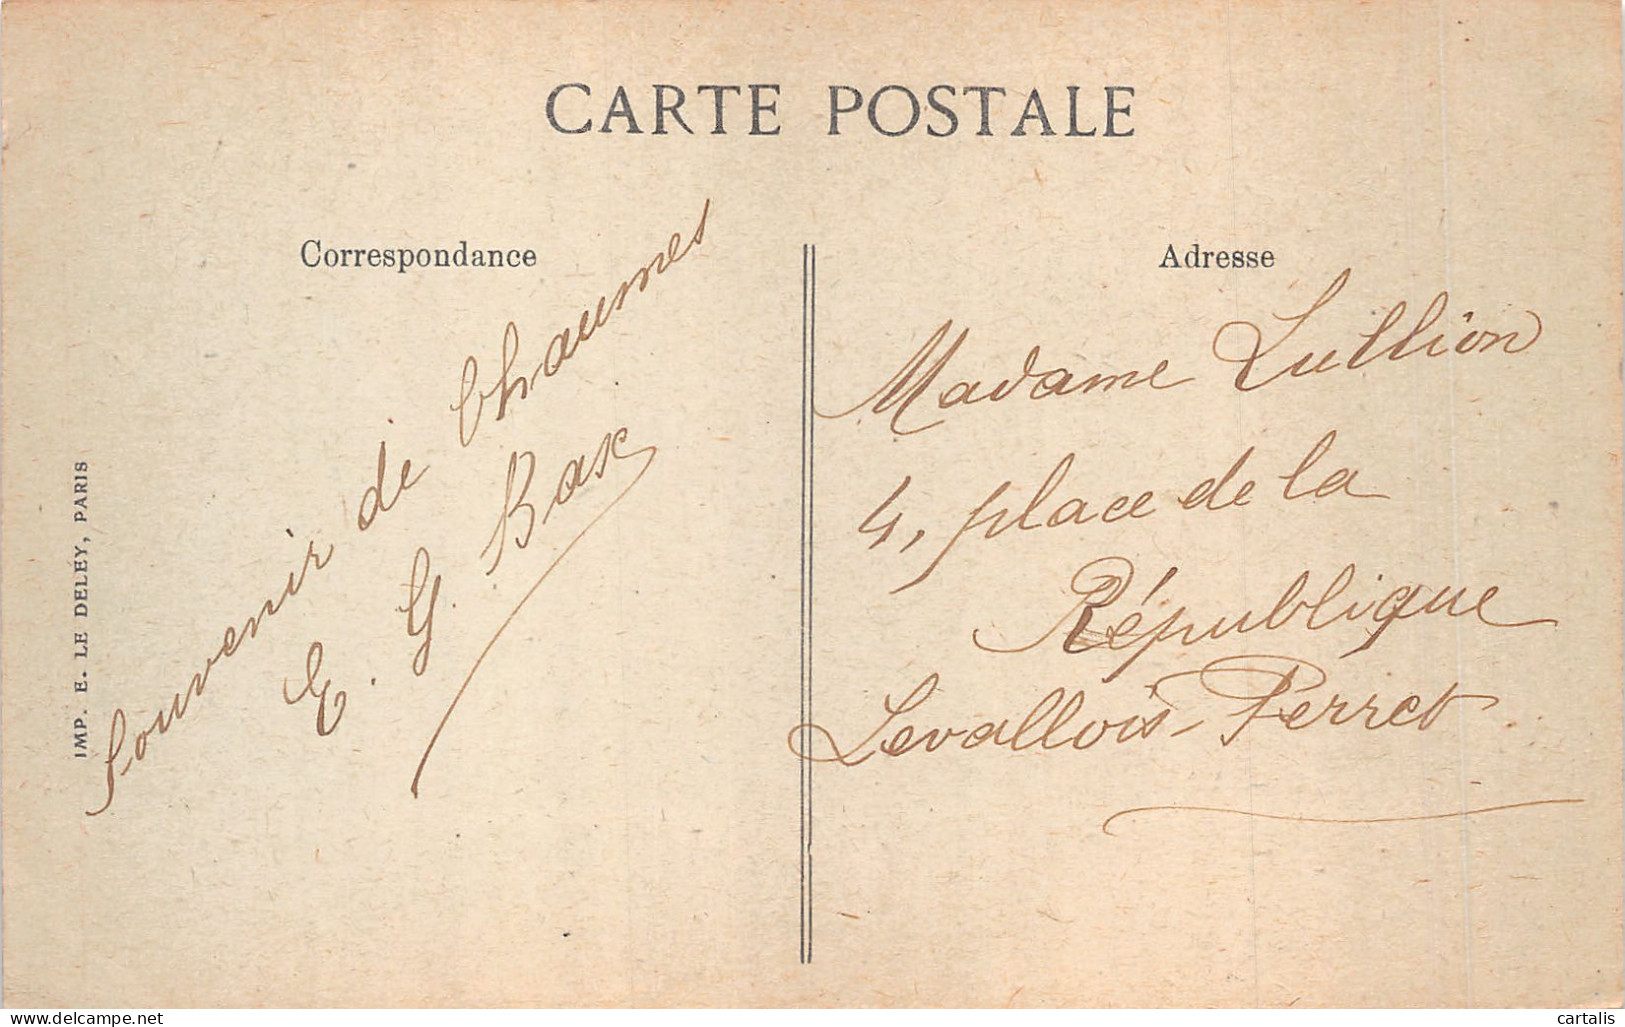 CARTE POSTALE
Correspondance
Souvenir de Chaumes
E. G. Bax
IMP. E. LE DELEY, PARIS
Adresse
Madame Lullion
4, place de la
République
Levallois-Perret
delcampe.net
cartalis